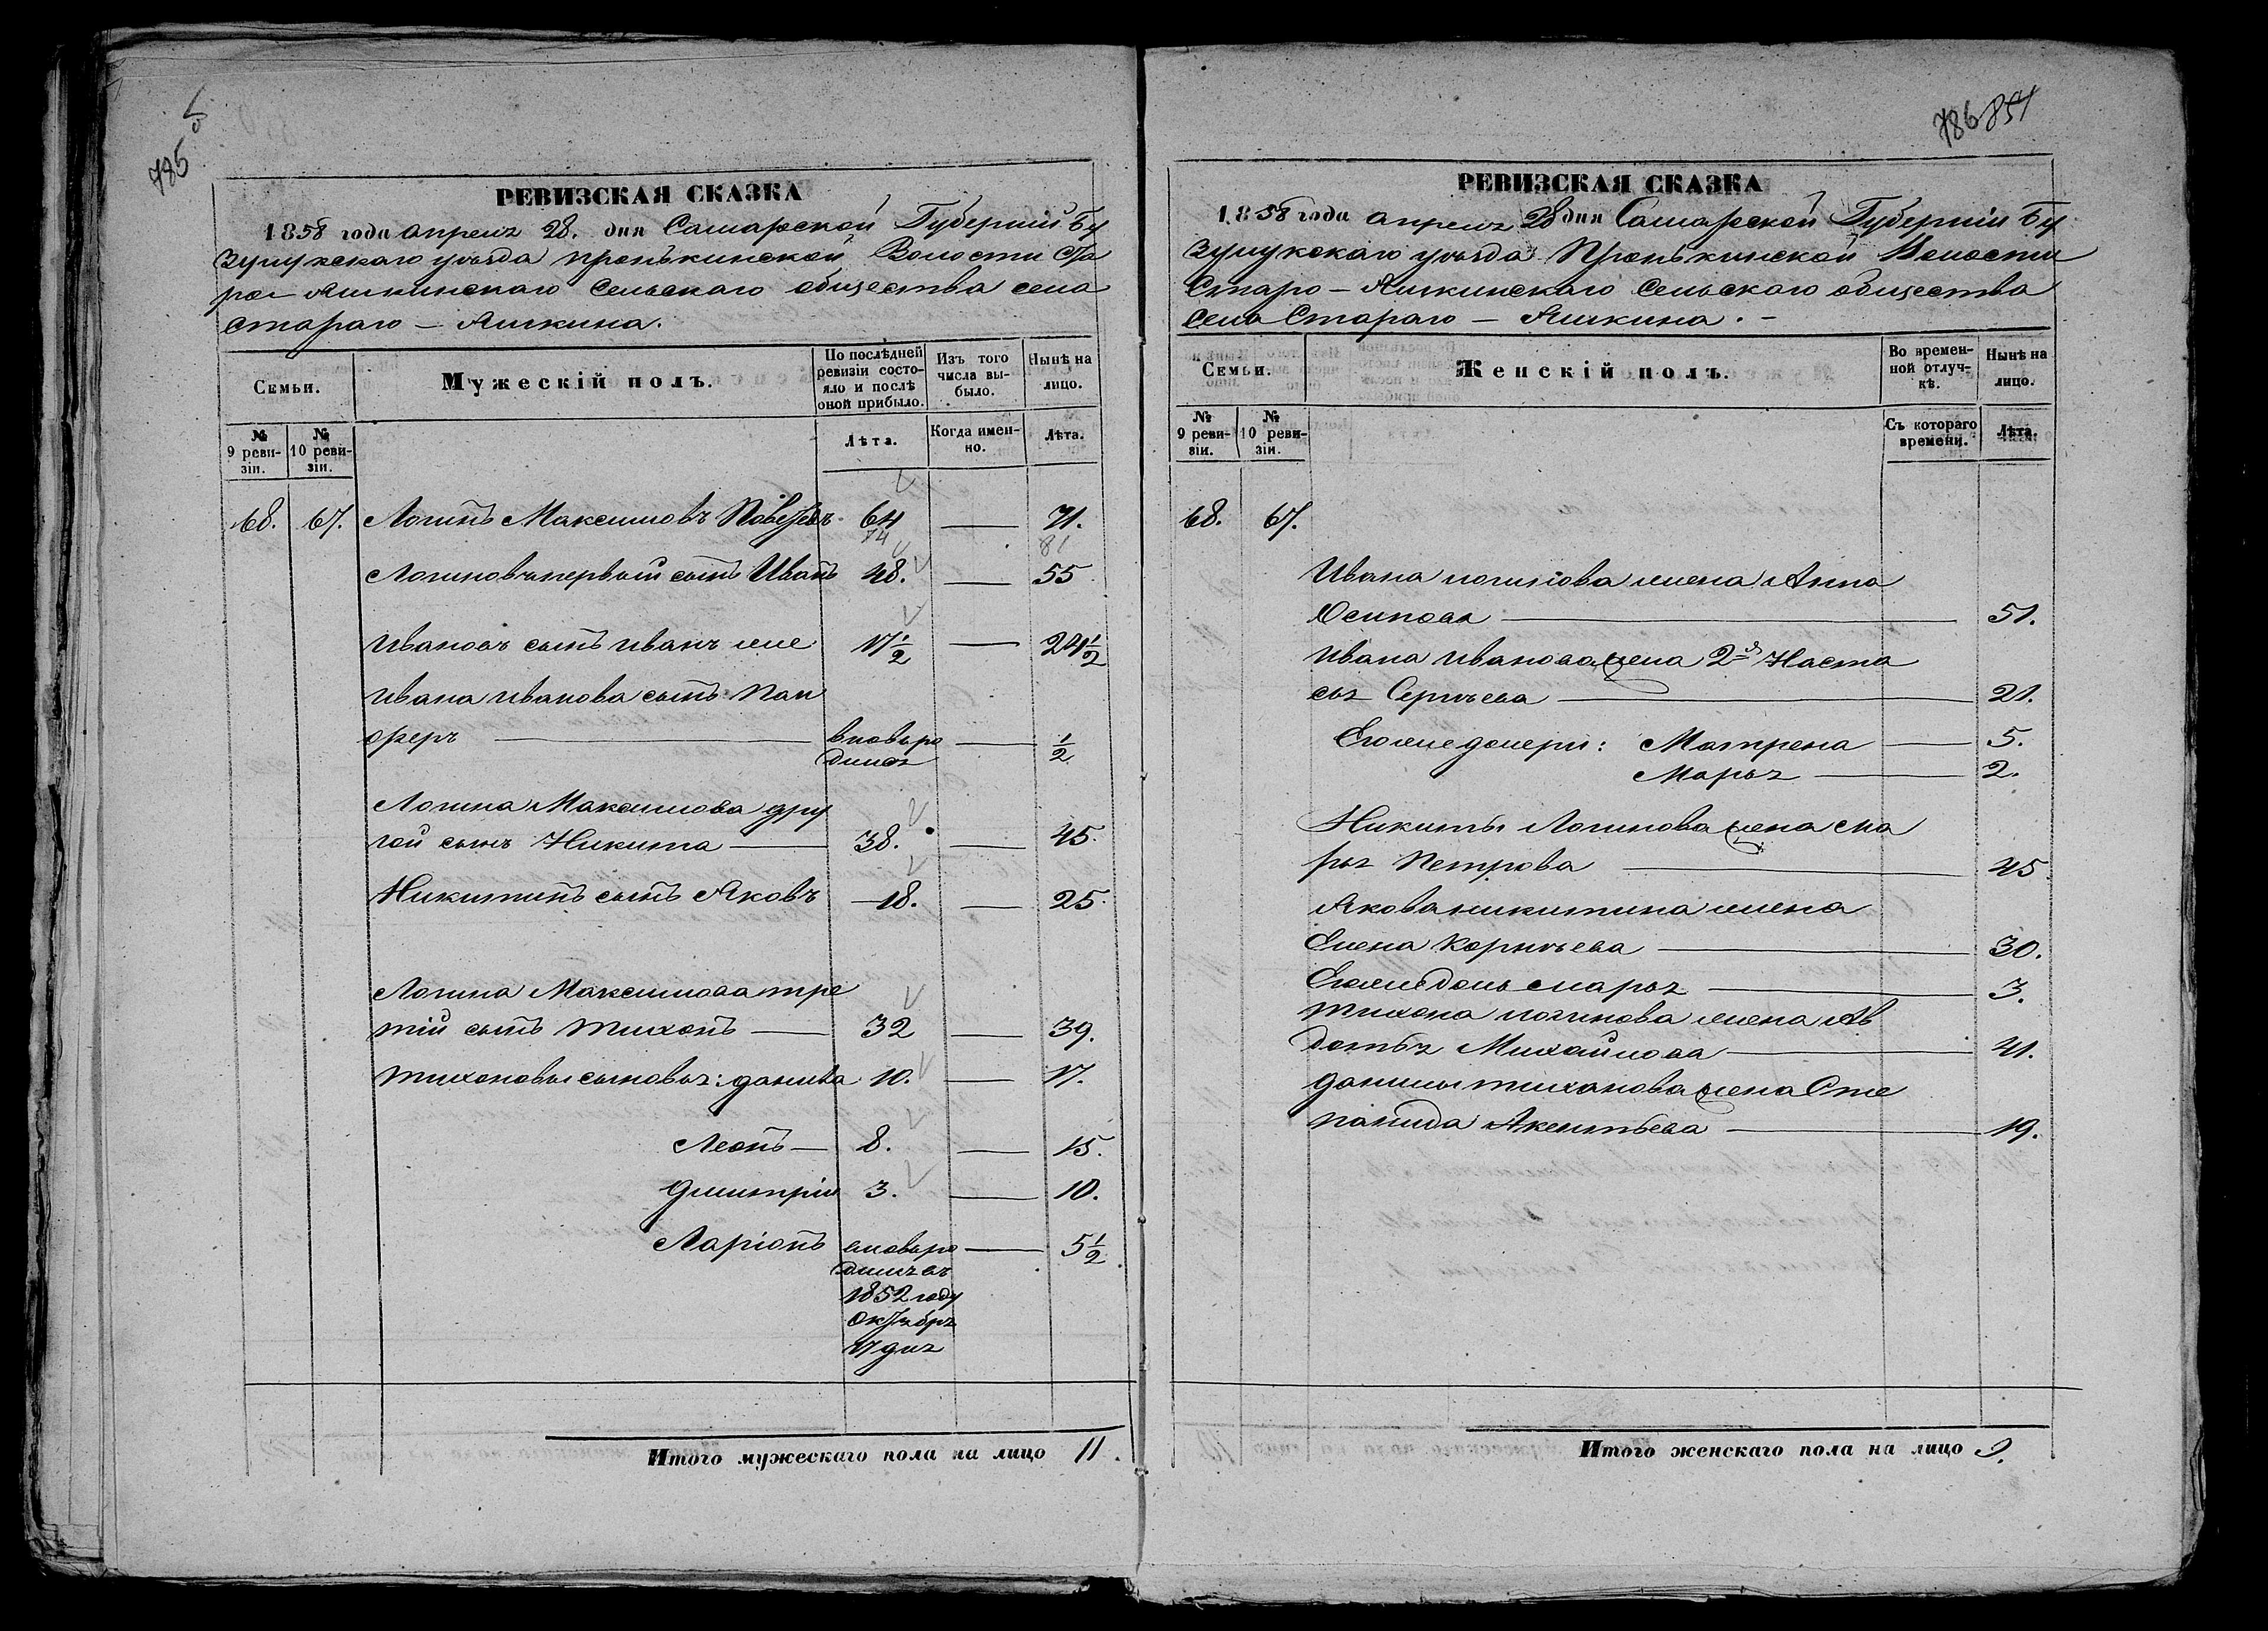 785
РЕВИЗСКАЯ СКАЗКА
1858 года апреля 28. дня Самарской Губерніи Бу
зулукскаго уѣзда Пронькинской Волости Ста
ро-Ашкинскаго Сельскаго общества села
Стараго - Ашкина.
Семьи.
Мужескій полъ.
По послѣдней ревизіи состояло и послѣ оной прибыло.
Изъ того числа выбыло.
Нынѣ на лицо.
№ 9 ревизіи.
№ 10 ревизіи.
Лѣта.
Когда именно.
Лѣта.
68. 67. Логинъ Максимовъ 64 — 71.
74 81
Логиновъ первый сынъ Иванъ 48. — 55
Ивановъ сынъ Иванъ же 17 1/2 — 24 1/2
Ивана Иванова сынъ Пан
феръ — вновь ро — 1/2
дился
Логина Максимова дру
гой сынъ Никита — 38. — 45.
Никитинъ сынъ Яковъ 18. — 25.
Логина Максимова тре
тій сынъ Тихонъ — 32 — 39.
Тихоновы сыновья: Данила 10. — 17.
Леонъ — 8. — 15.
Дмитрій 3. — 10.
Ларіонъ вновь ро — 5 1/2
дился въ
1852 году
октября
17 дня
Итого мужескаго пола на лицо 11.
786 854
РЕВИЗСКАЯ СКАЗКА
1858 года апреля 28 дня Самарской Губерніи Бу
зулукскаго уѣзда Пронькинской Волости
Старо - Ашкинскаго Сельскаго общества
села Стараго - Ашкина. -
Семьи.
Женскій полъ.
Во временной отлучкѣ.
Нынѣ на лицо.
№ 9 ревизіи.
№ 10 ревизіи.
Съ котораго времени.
Лѣта.
68. 67.
Ивана Логинова жена Анна
Осипова — 51.
Ивана Иванова жена 2я Наста
сья Сергѣева — 21.
Его же дочери: Матрена — 5.
Марья — 2.
Никиты Логинова жена Ма
рья Петрова — 45.
Якова Никитина жена
Елена Корнѣева — 30.
Его же дочь Марья — 3.
Тихона Логинова жена Ав
дотья Михайлова — 41.
Данилы Тиханова жена Сте
панида Акентьева — 19.
Итого женскаго пола на лицо 9.